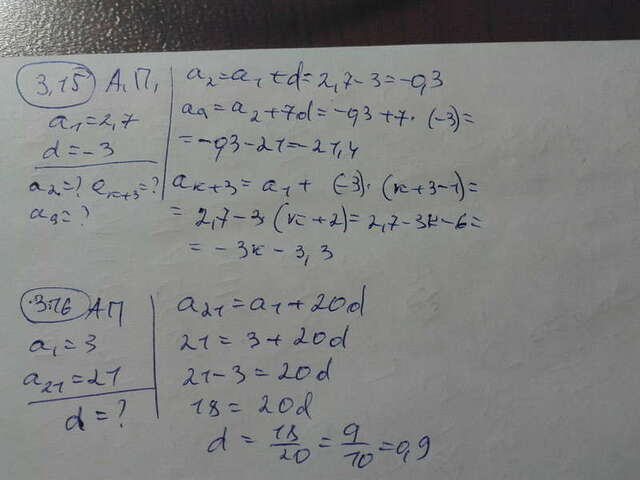 3,15 А.П.
a₁=2,7
d=-3
a₂=? aₖ₊₃=?
a₉=?
a₂=a₁+d=2,7-3=-0,3
a₉=a₂+7d=-0,3+7·(-3)=
=-0,3-21=-21,4
aₖ₊₃=a₁+(-3)·(k+3-1)=
=2,7-3(k+2)=2,7-3k-6=
=-3k-3,3
3.16 АП
a₁=3
a₂₁=21
d=?
a₂₁=a₁+20d
21=3+20d
21-3=20d
18=20d
d=18/20=9/10=0,9